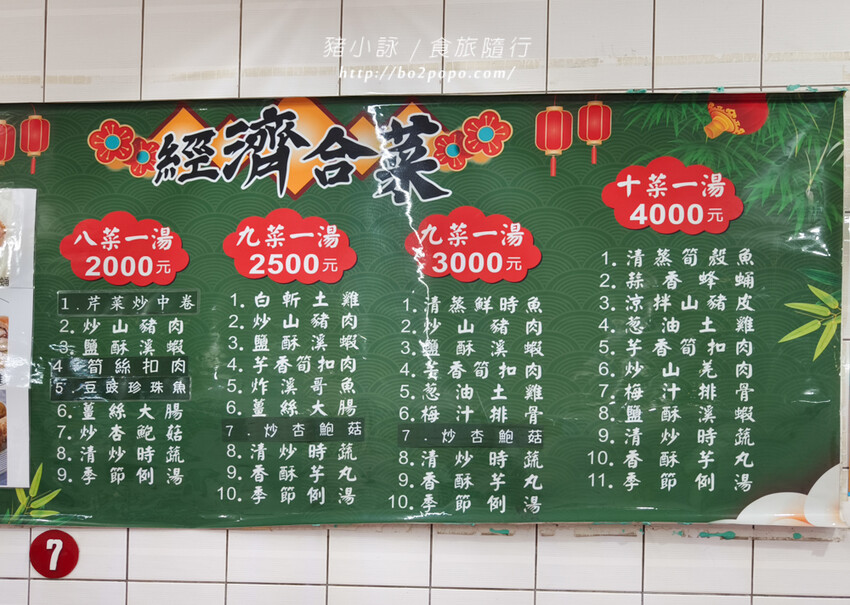 豬小詠 / 食旅隨行
http://bo2popo.com/
經濟合菜
八菜一湯
2000元
1.芹菜炒中卷
2.炒山豬肉
3.鹽酥溪蝦
4.筍絲扣肉
5.豆豉珍珠魚
6.薑絲大腸
7.炒杏鮑菇
8.清炒時蔬
9.季節例湯
九菜一湯
2500元
1.白斬土雞
2.炒山豬肉
3.鹽酥溪蝦
4.芋香筍扣肉
5.炸溪哥魚
6.薑絲大腸
7.炒杏鮑菇
8.清炒時蔬
9.香酥芋丸
10.季節例湯
九菜一湯
3000元
1.清蒸鮮時魚
2.炒山豬肉
3.鹽酥溪蝦
4.芋香筍扣肉
5.蔥油土雞
6.梅汁排骨
7.炒杏鮑菇
8.清炒時蔬
9.香酥芋丸
10.季節例湯
十菜一湯
4000元
1.清蒸筍殼魚
2.蒜香蜂蛹
3.涼拌山豬皮
4.蔥油土雞
5.芋香筍扣肉
6.炒山羌肉
7.梅汁排骨
8.鹽酥溪蝦
9.清炒時蔬
10.香酥芋丸
11.季節例湯
7